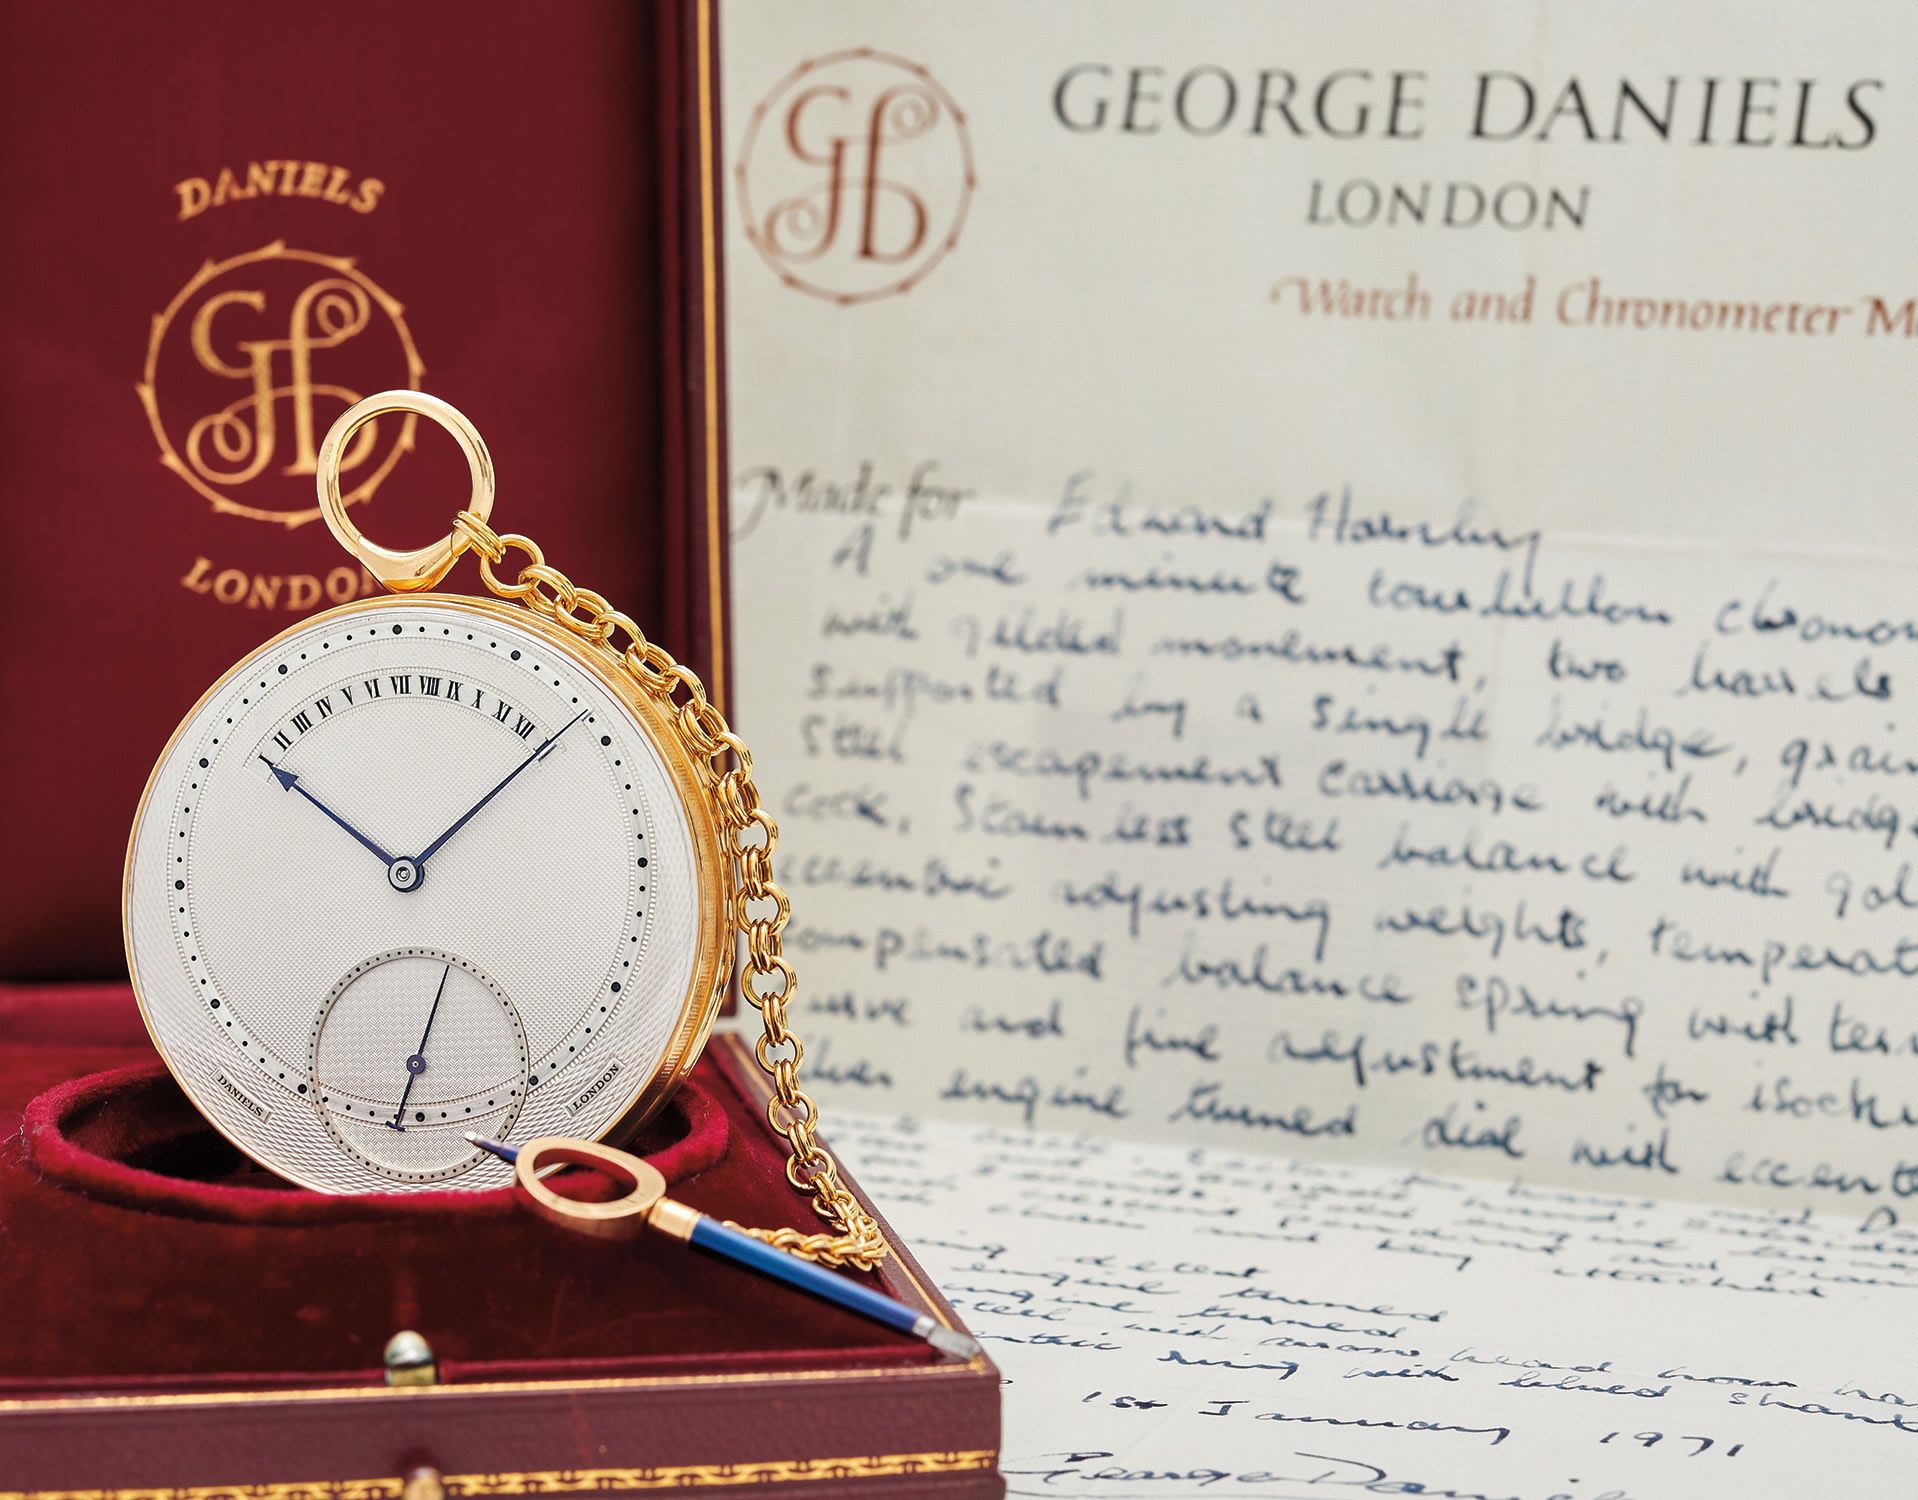 DANIELS
GD
LONDON
I II III IV V VI VII VIII IX X XI XII
DANIELS
LONDON
GD
GEORGE DANIELS
LONDON
Watch and Chronometer M
Made for Edward Hornby
A one minute tourbillon chronom
with gilded movement, two barrels
supported by a single bridge, grain
Steel escapement carriage with bridge
cock, Stainless Steel balance with gol
eccentric adjusting weights, temperat
compensated balance spring with ter
curve and fine adjustment for isochr
silver engine turned dial with eccent
and key attached.
detent
engine turned
engine turned
steel with arrow head hour ha
ring with blued shank
1st January 1971
George Daniel